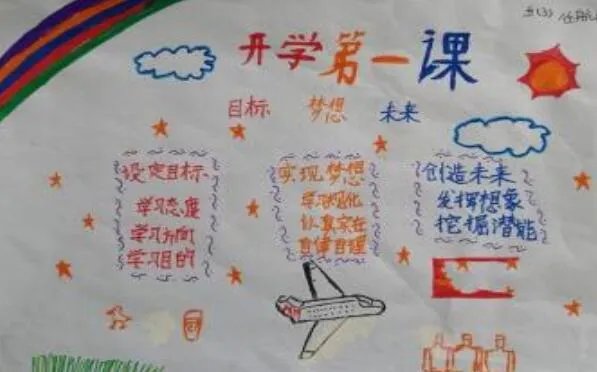 五(3)
开学第一课
目标 梦想 未来
设定目标
学习态度
学习方向
学习目的
实现梦想
学习规化
认真实在
自律自理
创造未来
发挥想象
挖掘潜能